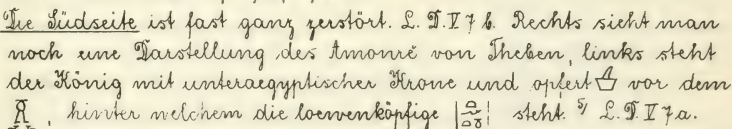 Die Südseite ist fast ganz zerstört. L. D. V 7 b. Rechts sieht man
noch eine Darstellung des Amonrē von Theben, links steht
der König mit unteraegyptischer Krone und opfert vor dem
, hinter welchem die loewenköpfige steht. 5/ L. D. V 7a.